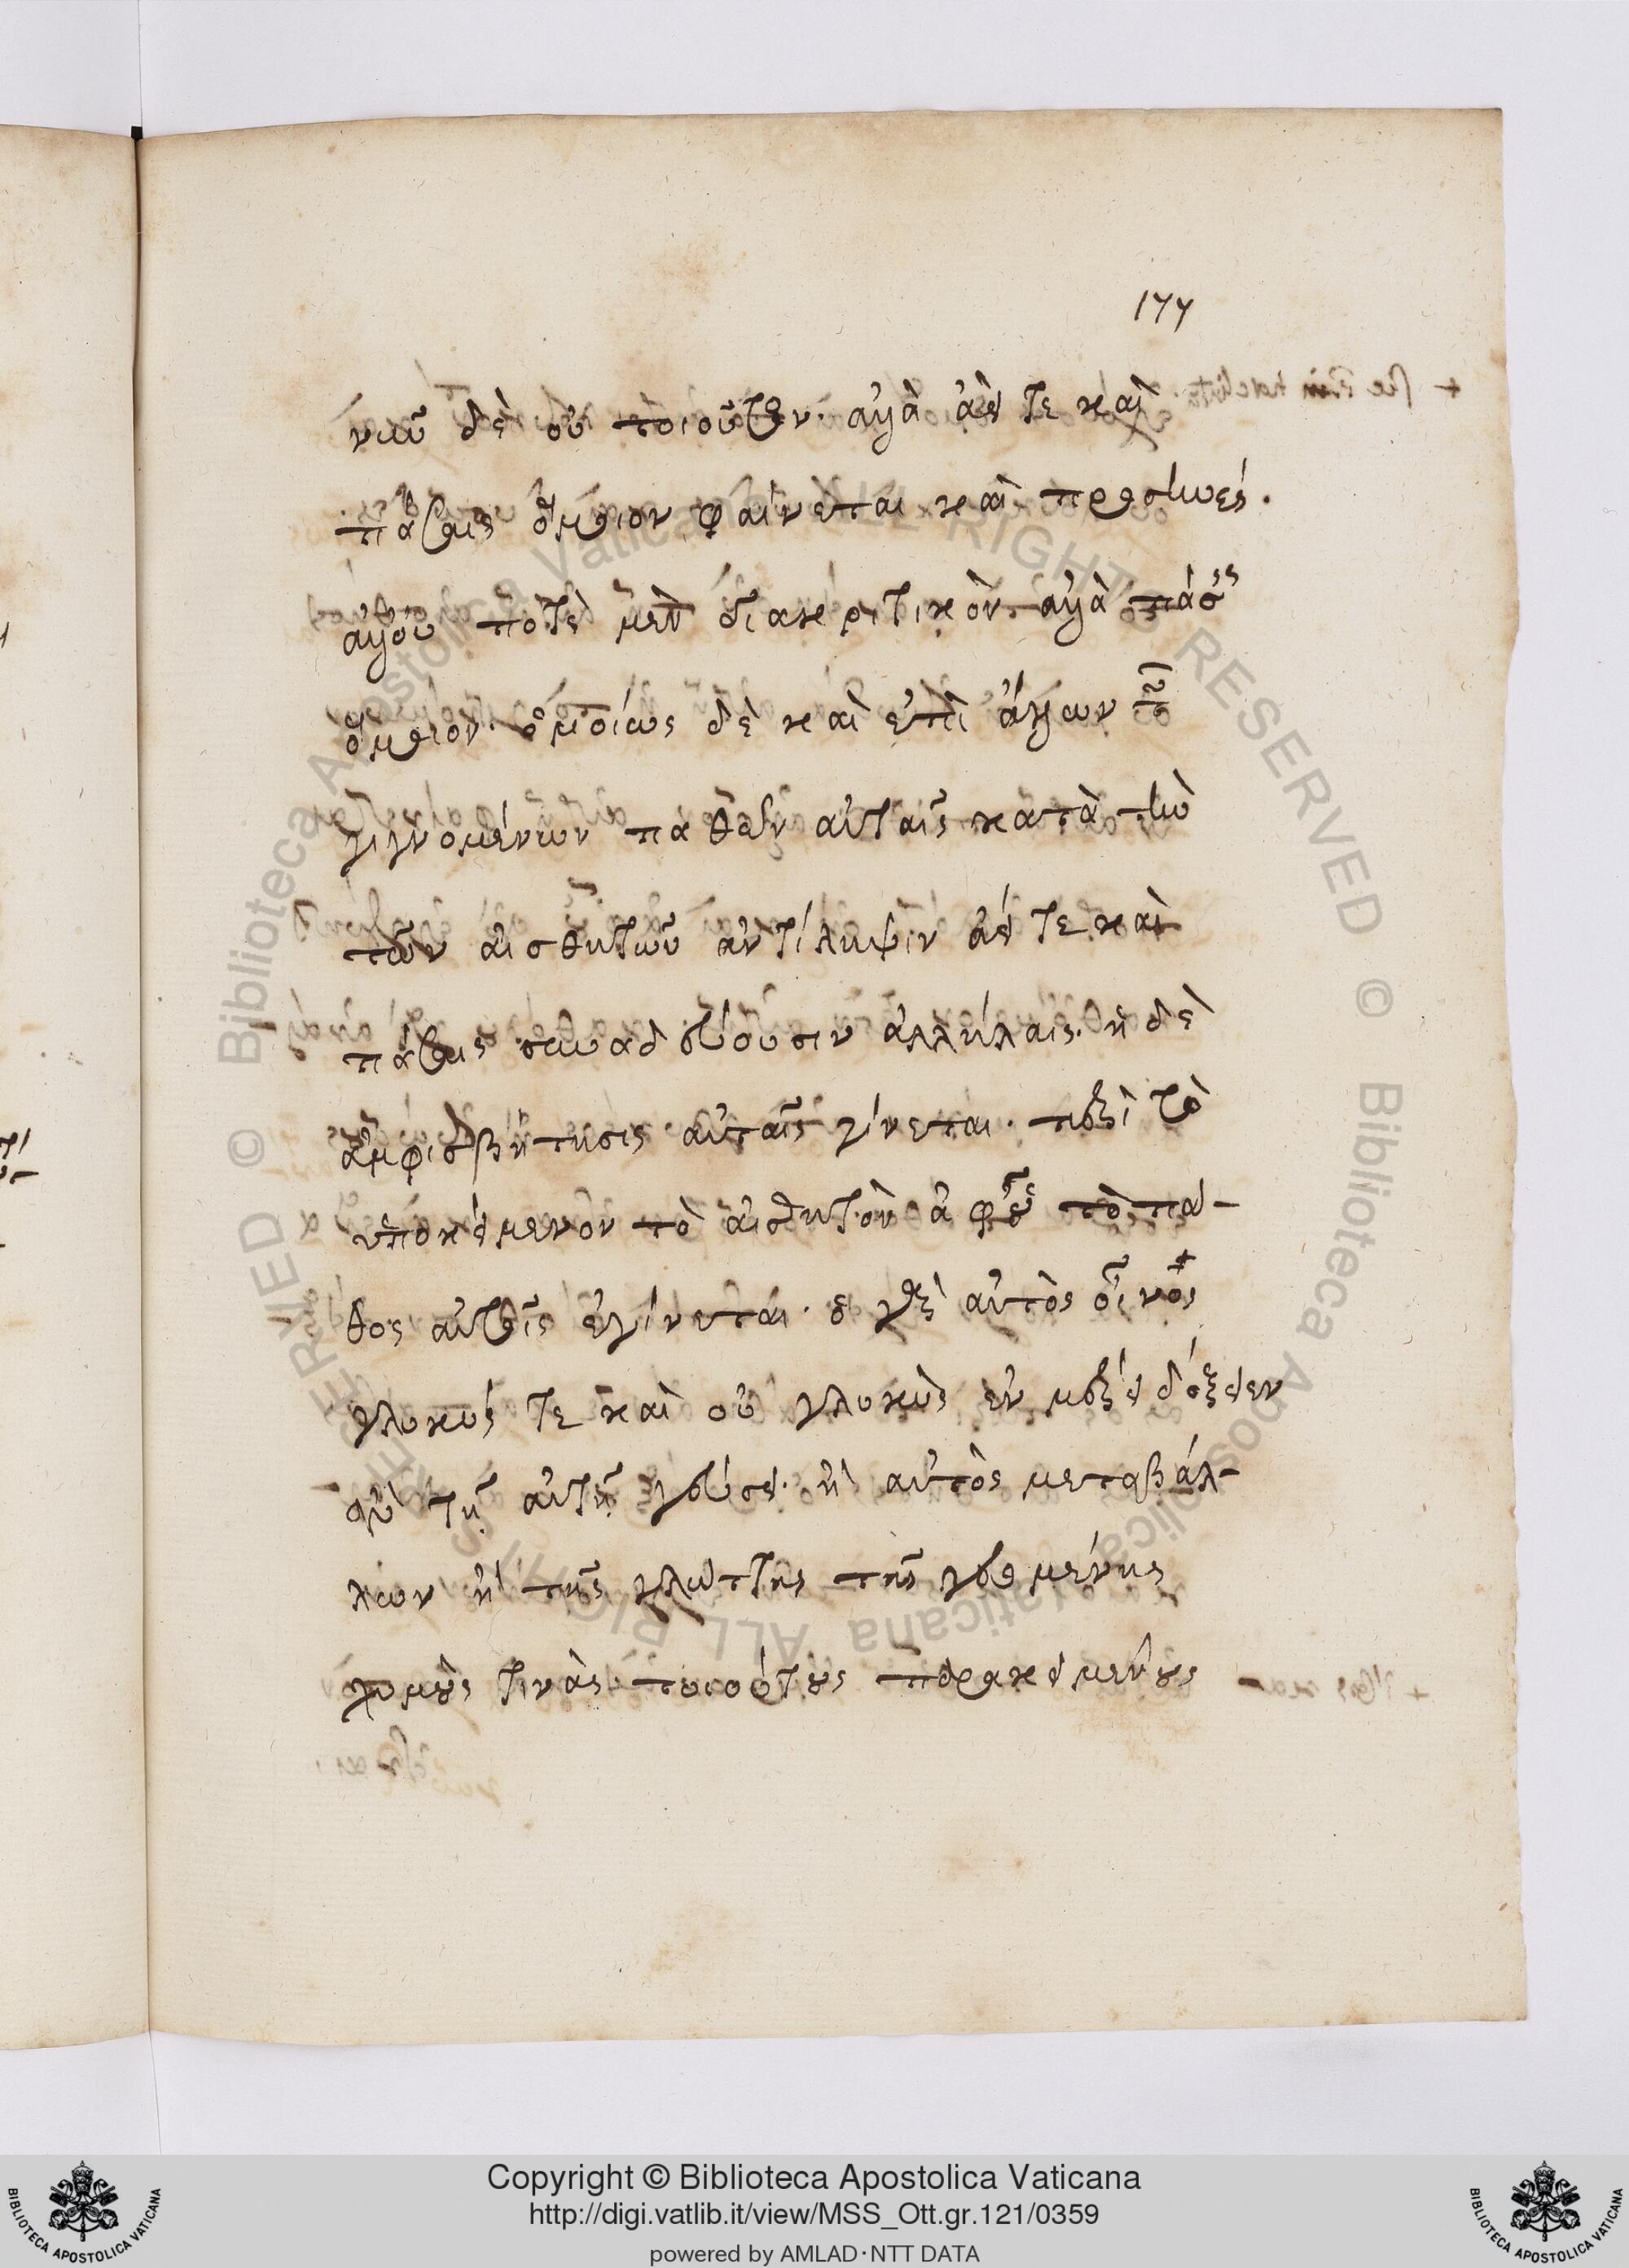 177
νιῶν δὲ οὐ ποιοῦσιν· ἀλλὰ ἀεί τε καὶ
πάσαις ὅμοιον φαίνεται καὶ προσηνές.
ἄλλου ποτὲ μὲν διακριτικὸν ἀλλὰ πάσαις
ὅμοιον· ὁμοίως δὲ καὶ ἐπὶ ἄλλων τῶν
γιγνομένων παθῶν αὐταῖς κατὰ τὴν
τῶν αἰσθητῶν ἀντίληψιν ἀεί τε καὶ
πάσαις συνᾴδουσιν ἀλλήλαις· ἡ δὲ
ἀμφισβήτησις αὐταῖς γίνεται· περὶ τὸ
ὑποκείμενον τὸ αἰσθητὸν ἀφ' οὗ τὸ πά-
θος αὐταῖς ἐγίνεται· ὁ γὰρ αὐτὸς οἶνος
γλυκύς τε καὶ οὐ γλυκὺς ἐν μέρει δόξειεν
ἂν τῇ αὐτῇ γεύσει· ἢ αὐτὸς μεταβάλ-
λων ἢ τῆς γλώττης τῆς γευομένης
χυμοὺς τινὰς τοιούτους παρακειμένους
Copyright © Biblioteca Apostolica Vaticana
http://digi.vatlib.it/view/MSS_Ott.gr.121/0359
powered by AMLAD·NTT DATA
BIBLIOTECA APOSTOLICA VATICANA
BIBLIOTECA APOSTOLICA VATICANA
© Biblioteca Apostolica Vaticana ALL RIGHTS RESERVED
© Biblioteca Apostolica Vaticana ALL RIGHTS RESERVED